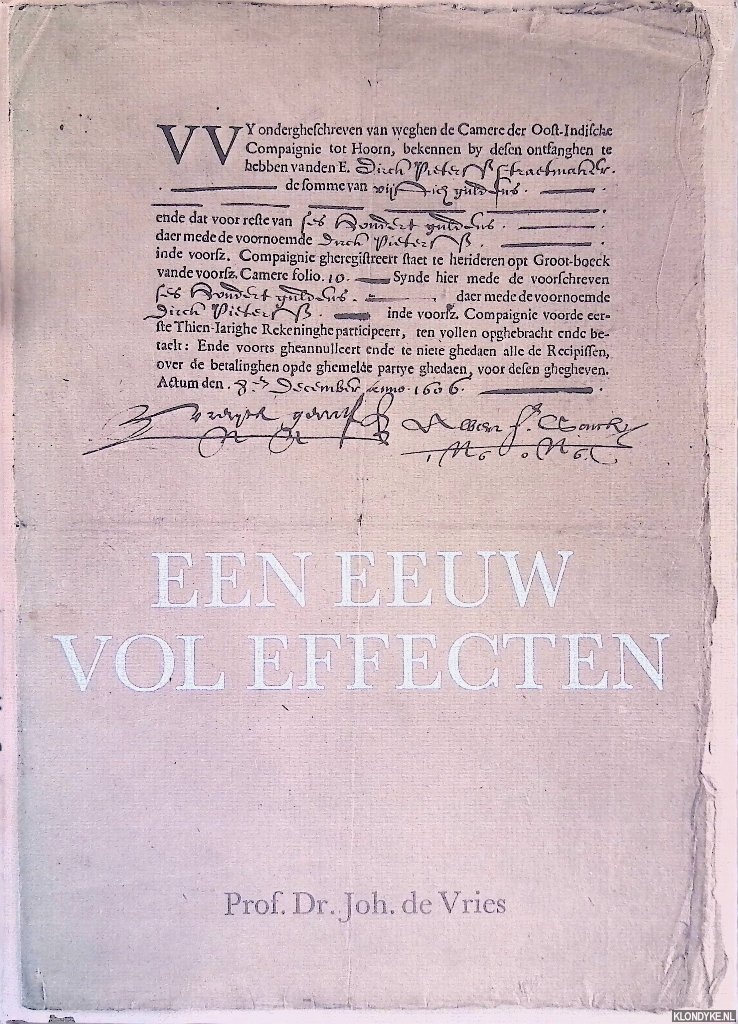 VVY ondergheschreven van weghen de Camere der Oost-Indische
Compaignie tot Hoorn, bekennen by desen ontfanghen te
hebben vanden E. Dirck Pieters
de somme van vijftich guldens
ende dat voor reste van ses hondert guldens
daer mede de voornoemde Dirck Pieters
inde voorsz. Compaignie gheregistreert staet te herideren opt Groot-boeck
vande voorsz. Camere folio. 10. Synde hier mede de voorschreven
ses hondert guldens. daer mede de voornoemde
Dirck Pieters inde voorsz. Compaignie voorde eer-
ste Thien-Iarighe Rekeninghe participeert, ten vollen opghebracht ende be-
taelt: Ende voorts gheannulleert ende te niete ghedaen alle de Recipissen,
over de betalinghen opde ghemelde partye ghedaen, voor desen ghegheven.
Actum den. 8. December anno. 1606.
EEN EEUW
VOL EFFECTEN
Prof. Dr. Joh. de Vries
KLONDYKE.NL